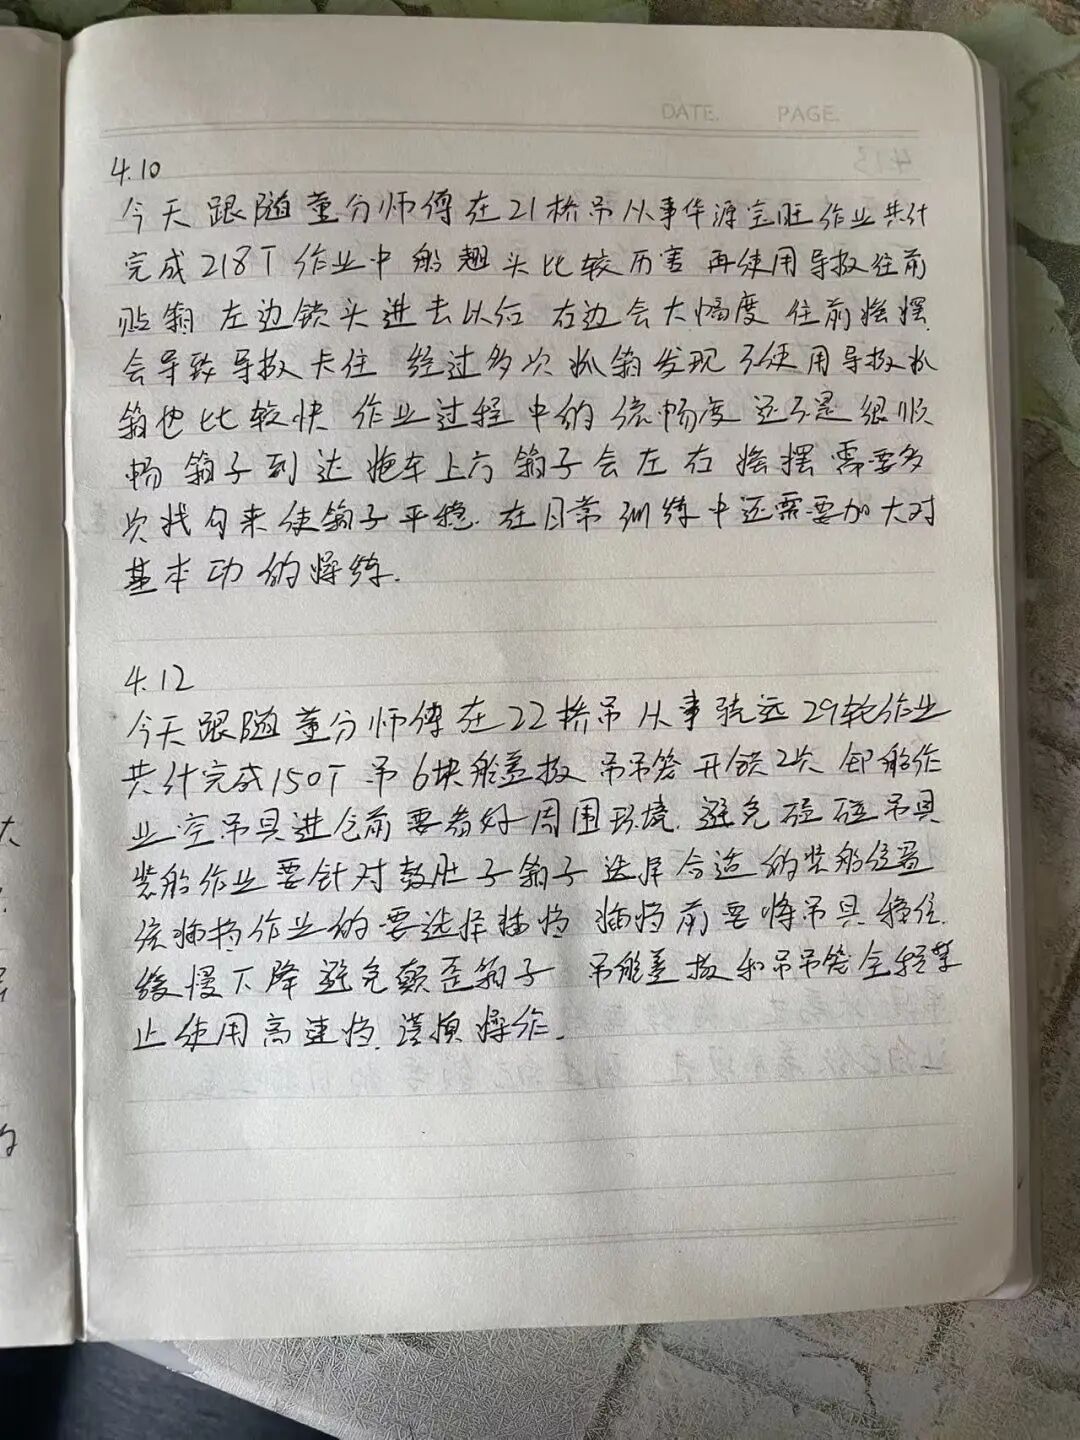 DATE. PAGE.
4.10
今天跟随董分师傅在21桥吊从事华源宝旺作业共计
完成218T 作业中船翘头比较历害 再使用导板往前
贴箱 左边锁头进去以后 右边会大幅度 往前摇摆.
会导致导板卡住 经过多次抓箱发现不使用导板抓
箱也比较快 作业过程中的流畅度还不是很顺
畅 箱子到达拖车上方 箱子会左右摇摆需要多
次找勾来使箱子平稳. 在日常训练中还需要加大对
基本功的操练.
4.12
今天跟随董分师傅在22桥吊从事骁远29轮作业
共计完成150T 吊6块舱盖板 吊吊笼开锁2次 卸船作
业空吊具进仓前要看好周围环境. 避免碰磕吊具
装船作业要针对鼓肚子箱子选择合适的装船位置
流插档作业的要选择插档 插档前要将吊具稳住.
缓慢下降避免颠歪箱子 吊舱盖板和吊吊笼全程禁
止使用高速档. 谨慎操作.